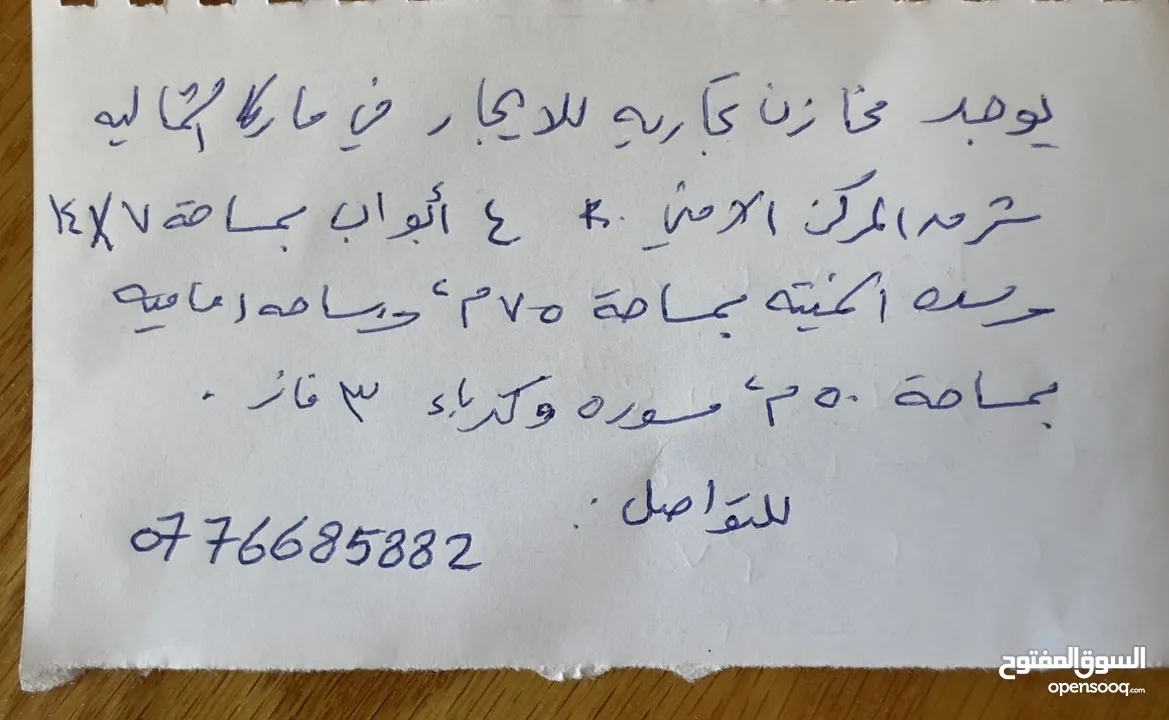 يوجد مخازن تجاريه للايجار في ماركا الشماليه
شرق المركز الامني ٤ أبواب بمساحة ٧X١٤
وسده اكمنيته بمساحة ٧٥م٢ وساحه اماميه
بمساحة ٥٠م٢ مسوره وكهرباء ٣ فاز .
للتواصل :
0776685882
السوق المفتوح
opensooq.com